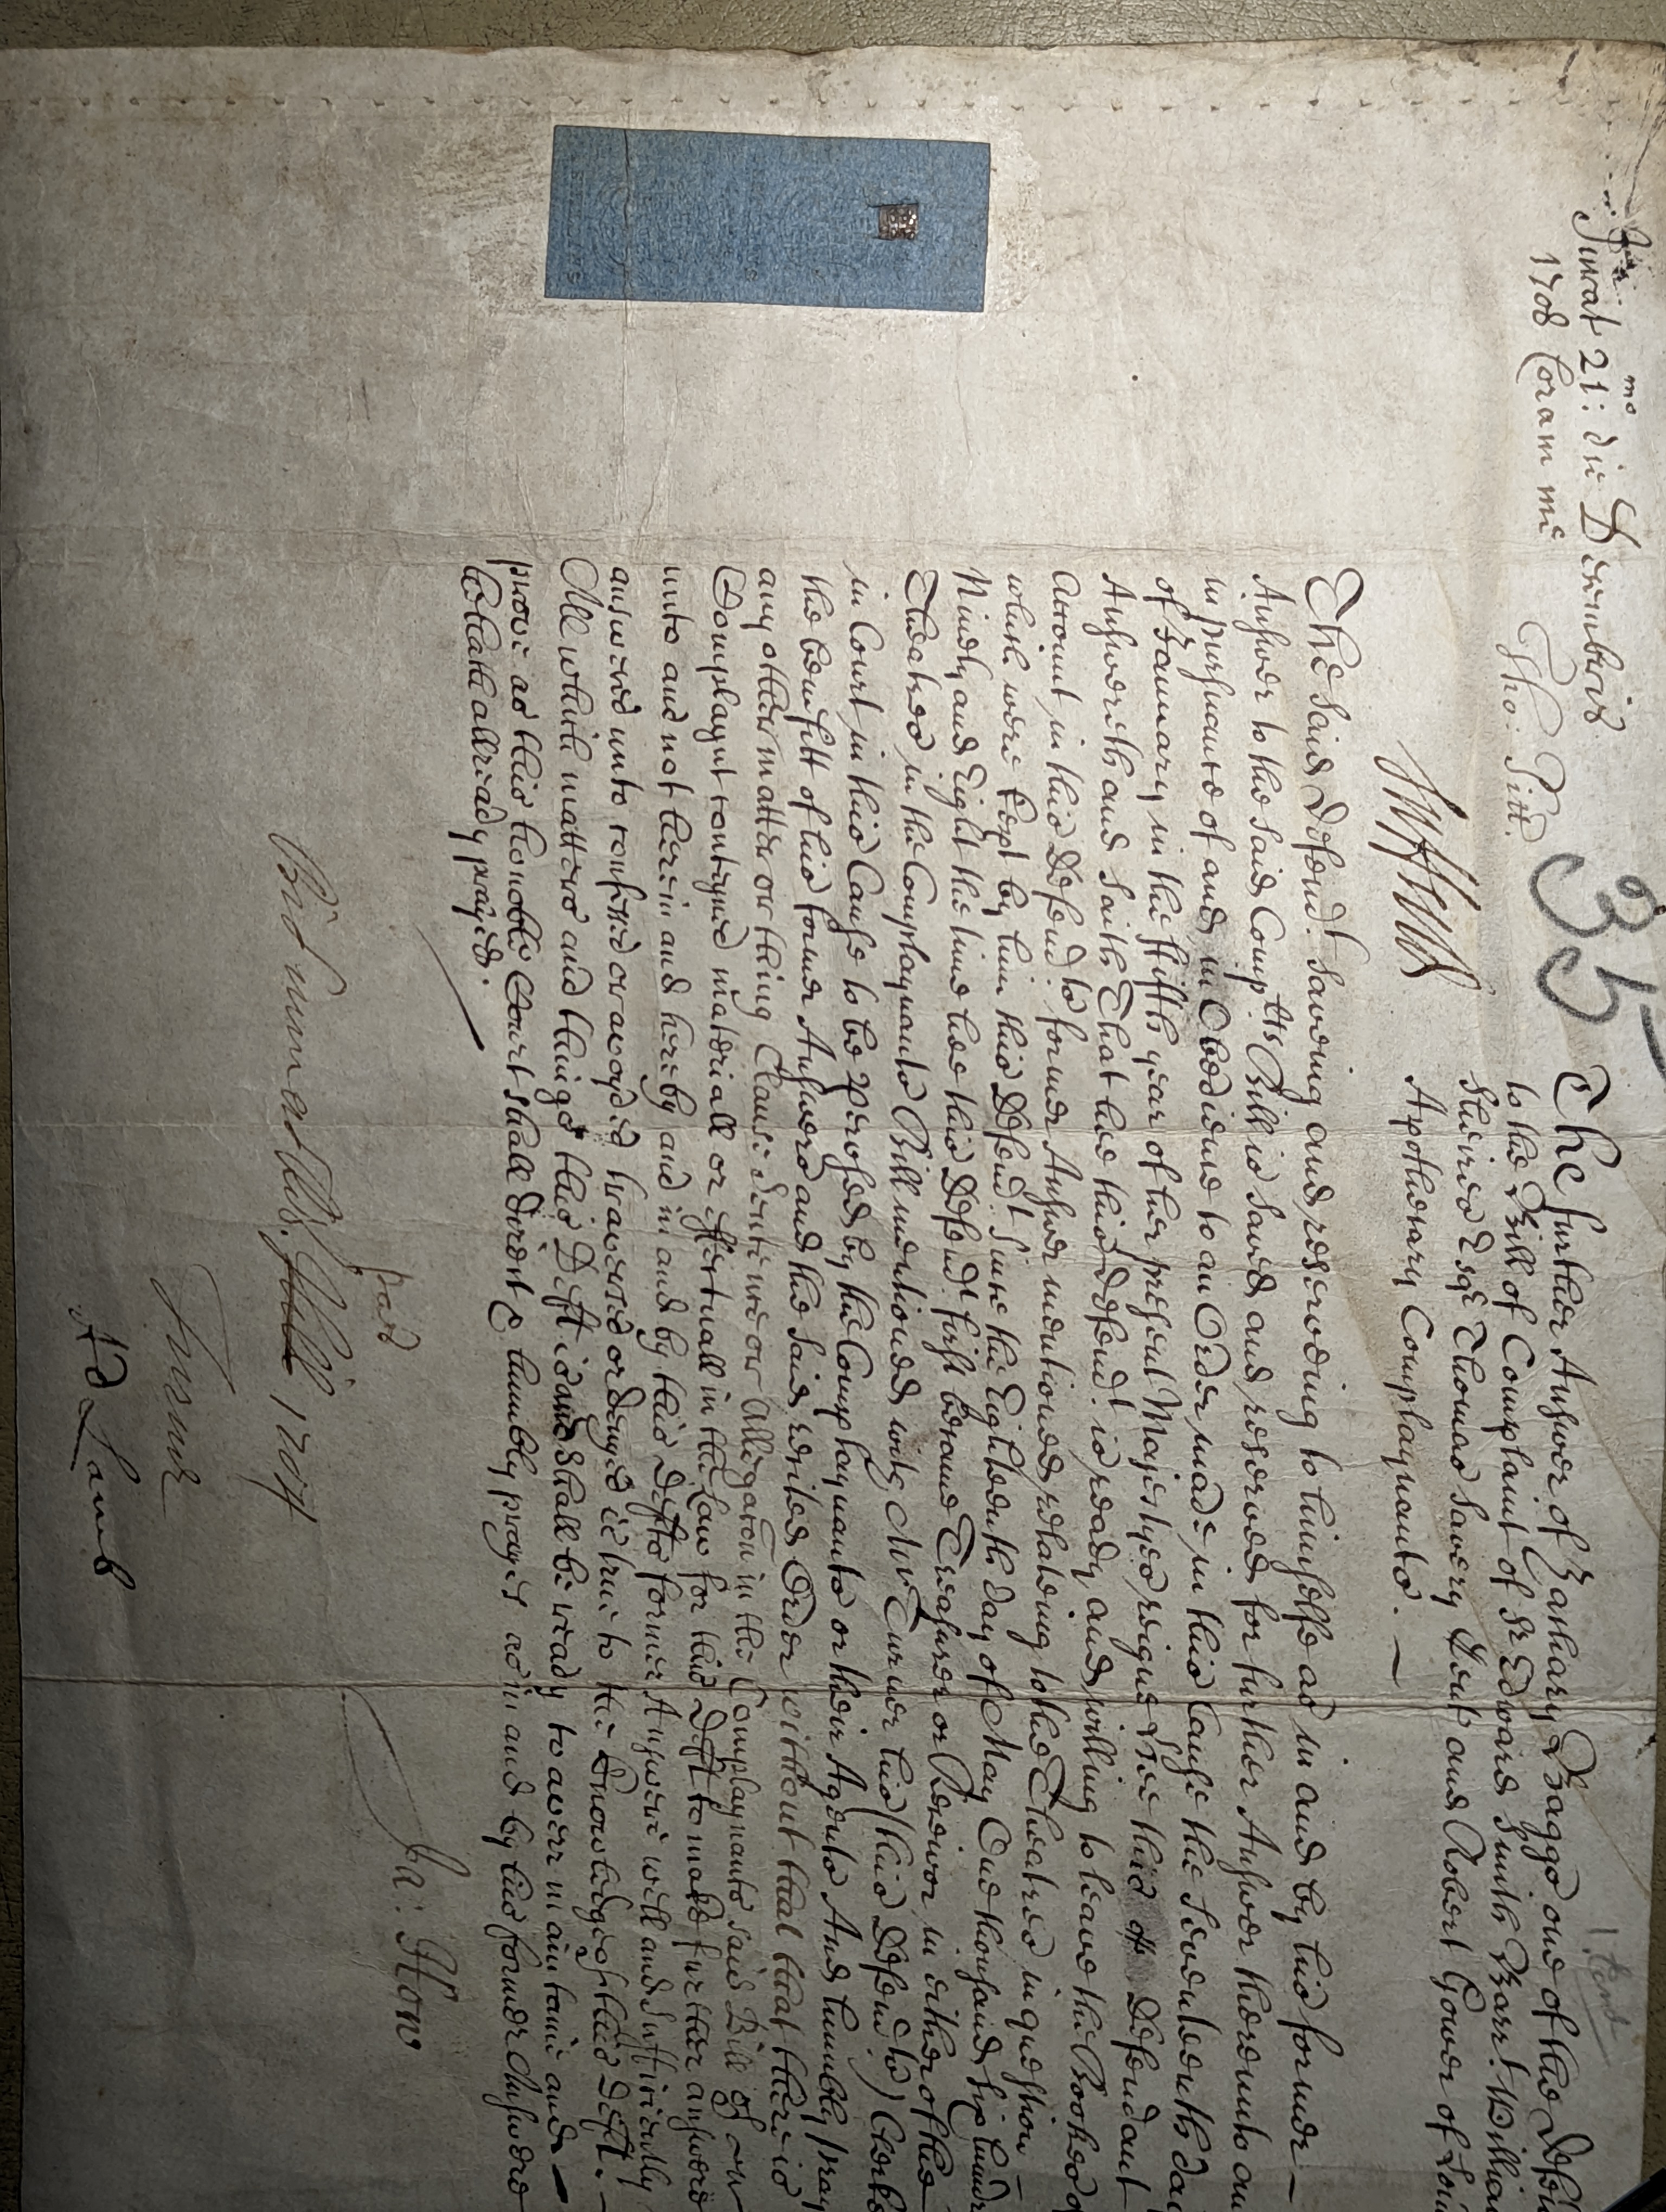 Jurat 21:mo die Decembris
1708 Coram me
Tho: Pitt.
35
The further Answer of Zachary Baggs one of the Defen
to the Bill of Complaint of Sr Edward Smith Barrt. Willia
Sheires Esqr. Thomas Savery Gent and Robert Gower of Lon
Apothecary Complaynants. —
The said Defendt. saveing and reserveing to himselfe as in and by his former —
Answer to the said Complts Bill is saved and reserved for further Answer thereunto an
in pursuance of and in Obedience to an Order made in this Cause the Seventeenth da
of January in the fifth year of her present Majestyes reigne Hee this Defendant
Answereth and saith That hee this Defendt. is ready and willing to leave the Bookes o
Account in this Defendts. former Answer mentioned relateing to the Theatres in question —
which were kept by him this Defendt. since the Eighteenth day of May One thousand six hundr
Ninety and Eight the time hee this Defendt. first became Treasurer or Receivor in either of the
Theatres in the Complaynants Bill mentioned with Mr Turner his (this Defendts.) Clerke
in Court in this Cause to be perused by the Complaynants or their Agents And humbly pray
the benefitt of his former Answers and the said recited Order without that that there is
any other matter or thing Clause Sentence or Allegacon in the Complaynants said Bill of
Complaynt contayned materiall or effectuall in the Law for this Deft to make further answere
unto and not herein and hereby and in and by this Defts former Answere well and sufficiently
answered unto confessed or avoyded traversed or denyed is true to the knowledge of this Deft. —
All which matters and things this Deft is and shall be ready to averr maintaine and —
prove as this honoble Court shall direct & humbly prayes as in and by his former Answere
he hath allready prayed.
Ja: Stone
pas
1708
Turner
Ad Lamb